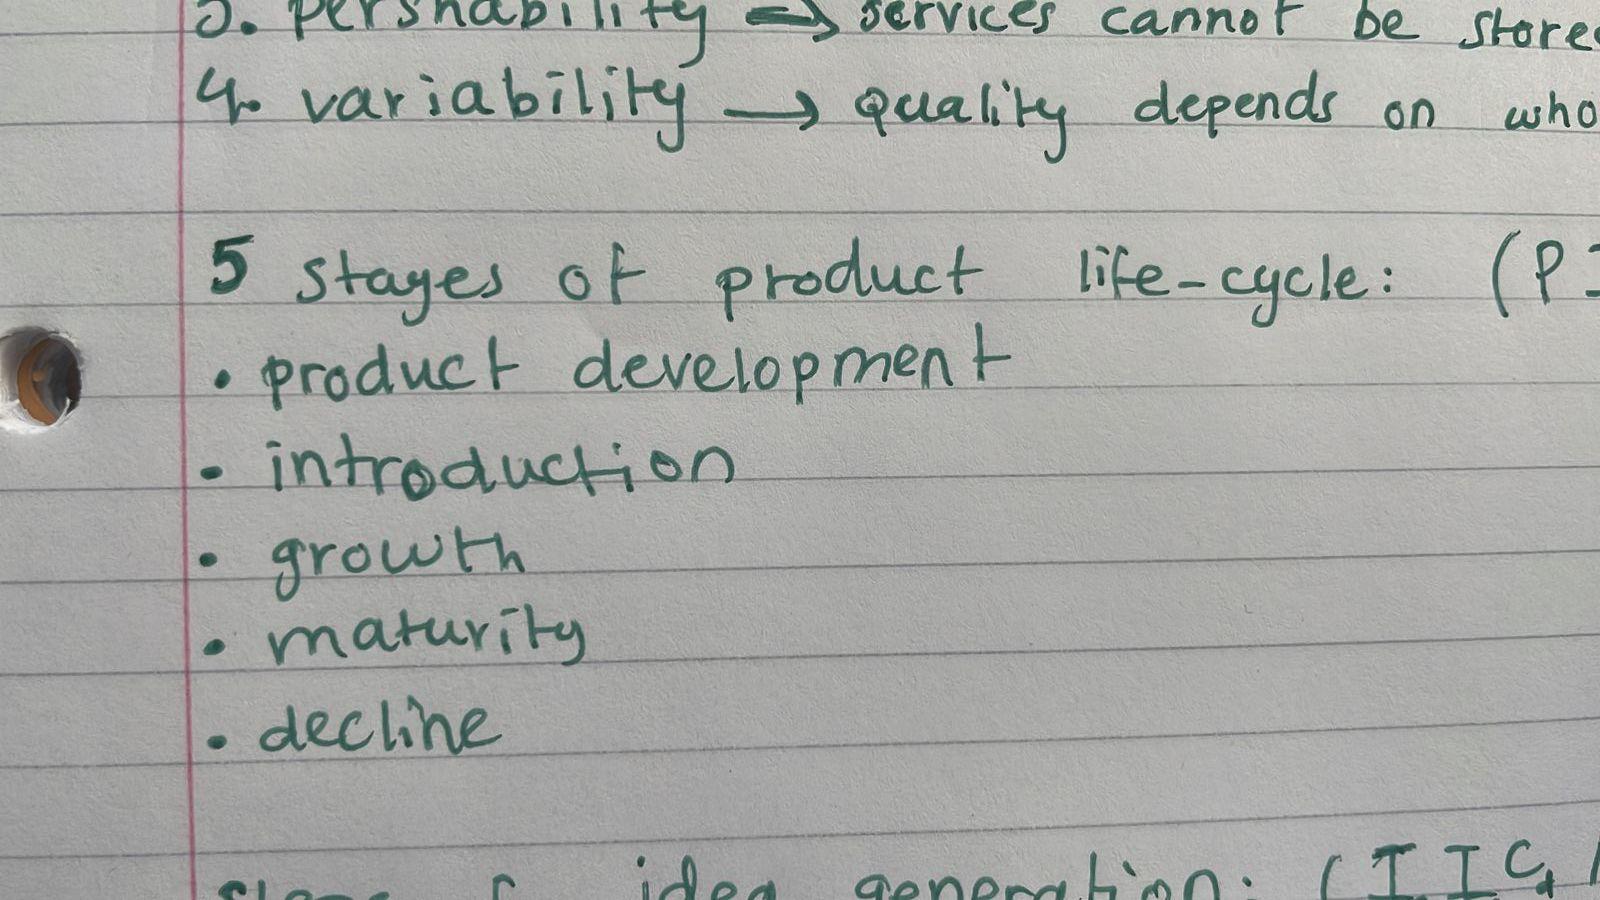 3. perishability → services cannot be stored
4. variability → quality depends on who
5 stages of product life-cycle: (P
• product development
• introduction
• growth
• maturity
• decline
idea generation: (I I C